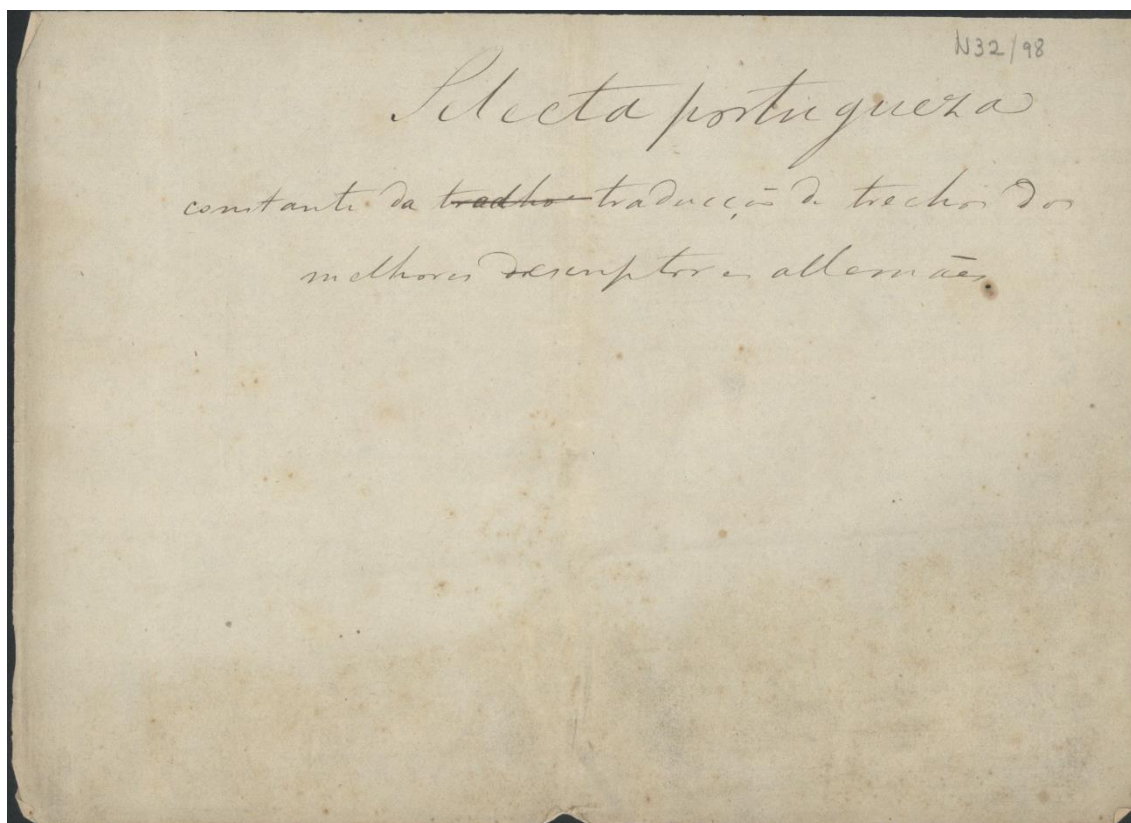 N32/98
Selecta portugueza
constante da tradho traducção de trechos dos
melhores escriptores allemães